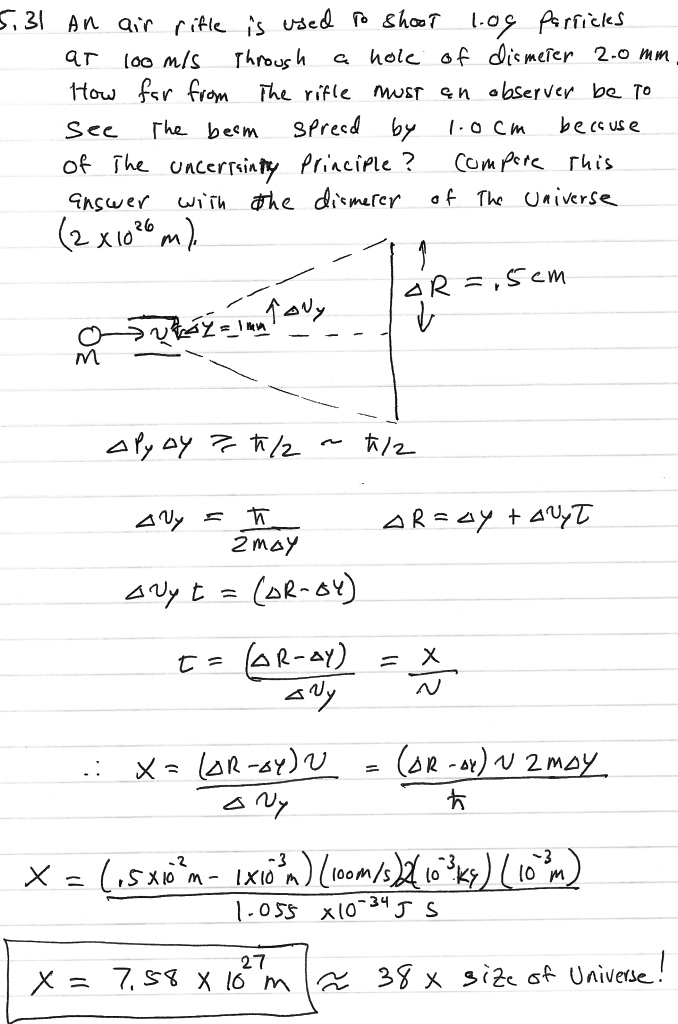 5.31 An air rifle is used to shoot 1.0g particles
at 100 m/s through a hole of diameter 2.0 mm.
How far from the rifle must an observer be to
see the beam spread by 1.0 cm because
of the uncertainty principle? Compare this
answer with the diameter of the Universe
(2 x 10²⁶ m).
ΔR = .5 cm
↑ΔVy
m → v ΔY = 1mm
ΔPy ΔY ≥ ħ/2 ~ ħ/2
ΔVy = ħ / 2mΔY ΔR = ΔY + ΔVy t
ΔVy t = (ΔR-ΔY)
t = (ΔR-ΔY) / ΔVy = X / v
∴ X = (ΔR-ΔY) v / ΔVy = (ΔR-ΔY) v 2mΔY / ħ
X = (.5x10⁻² m - 1x10⁻³ m)(100m/s)2(10⁻³ kg)(10⁻³ m) / 1.055 x10⁻³⁴ J S
X = 7.58 x 10²⁷ m ≈ 38 x size of Universe!